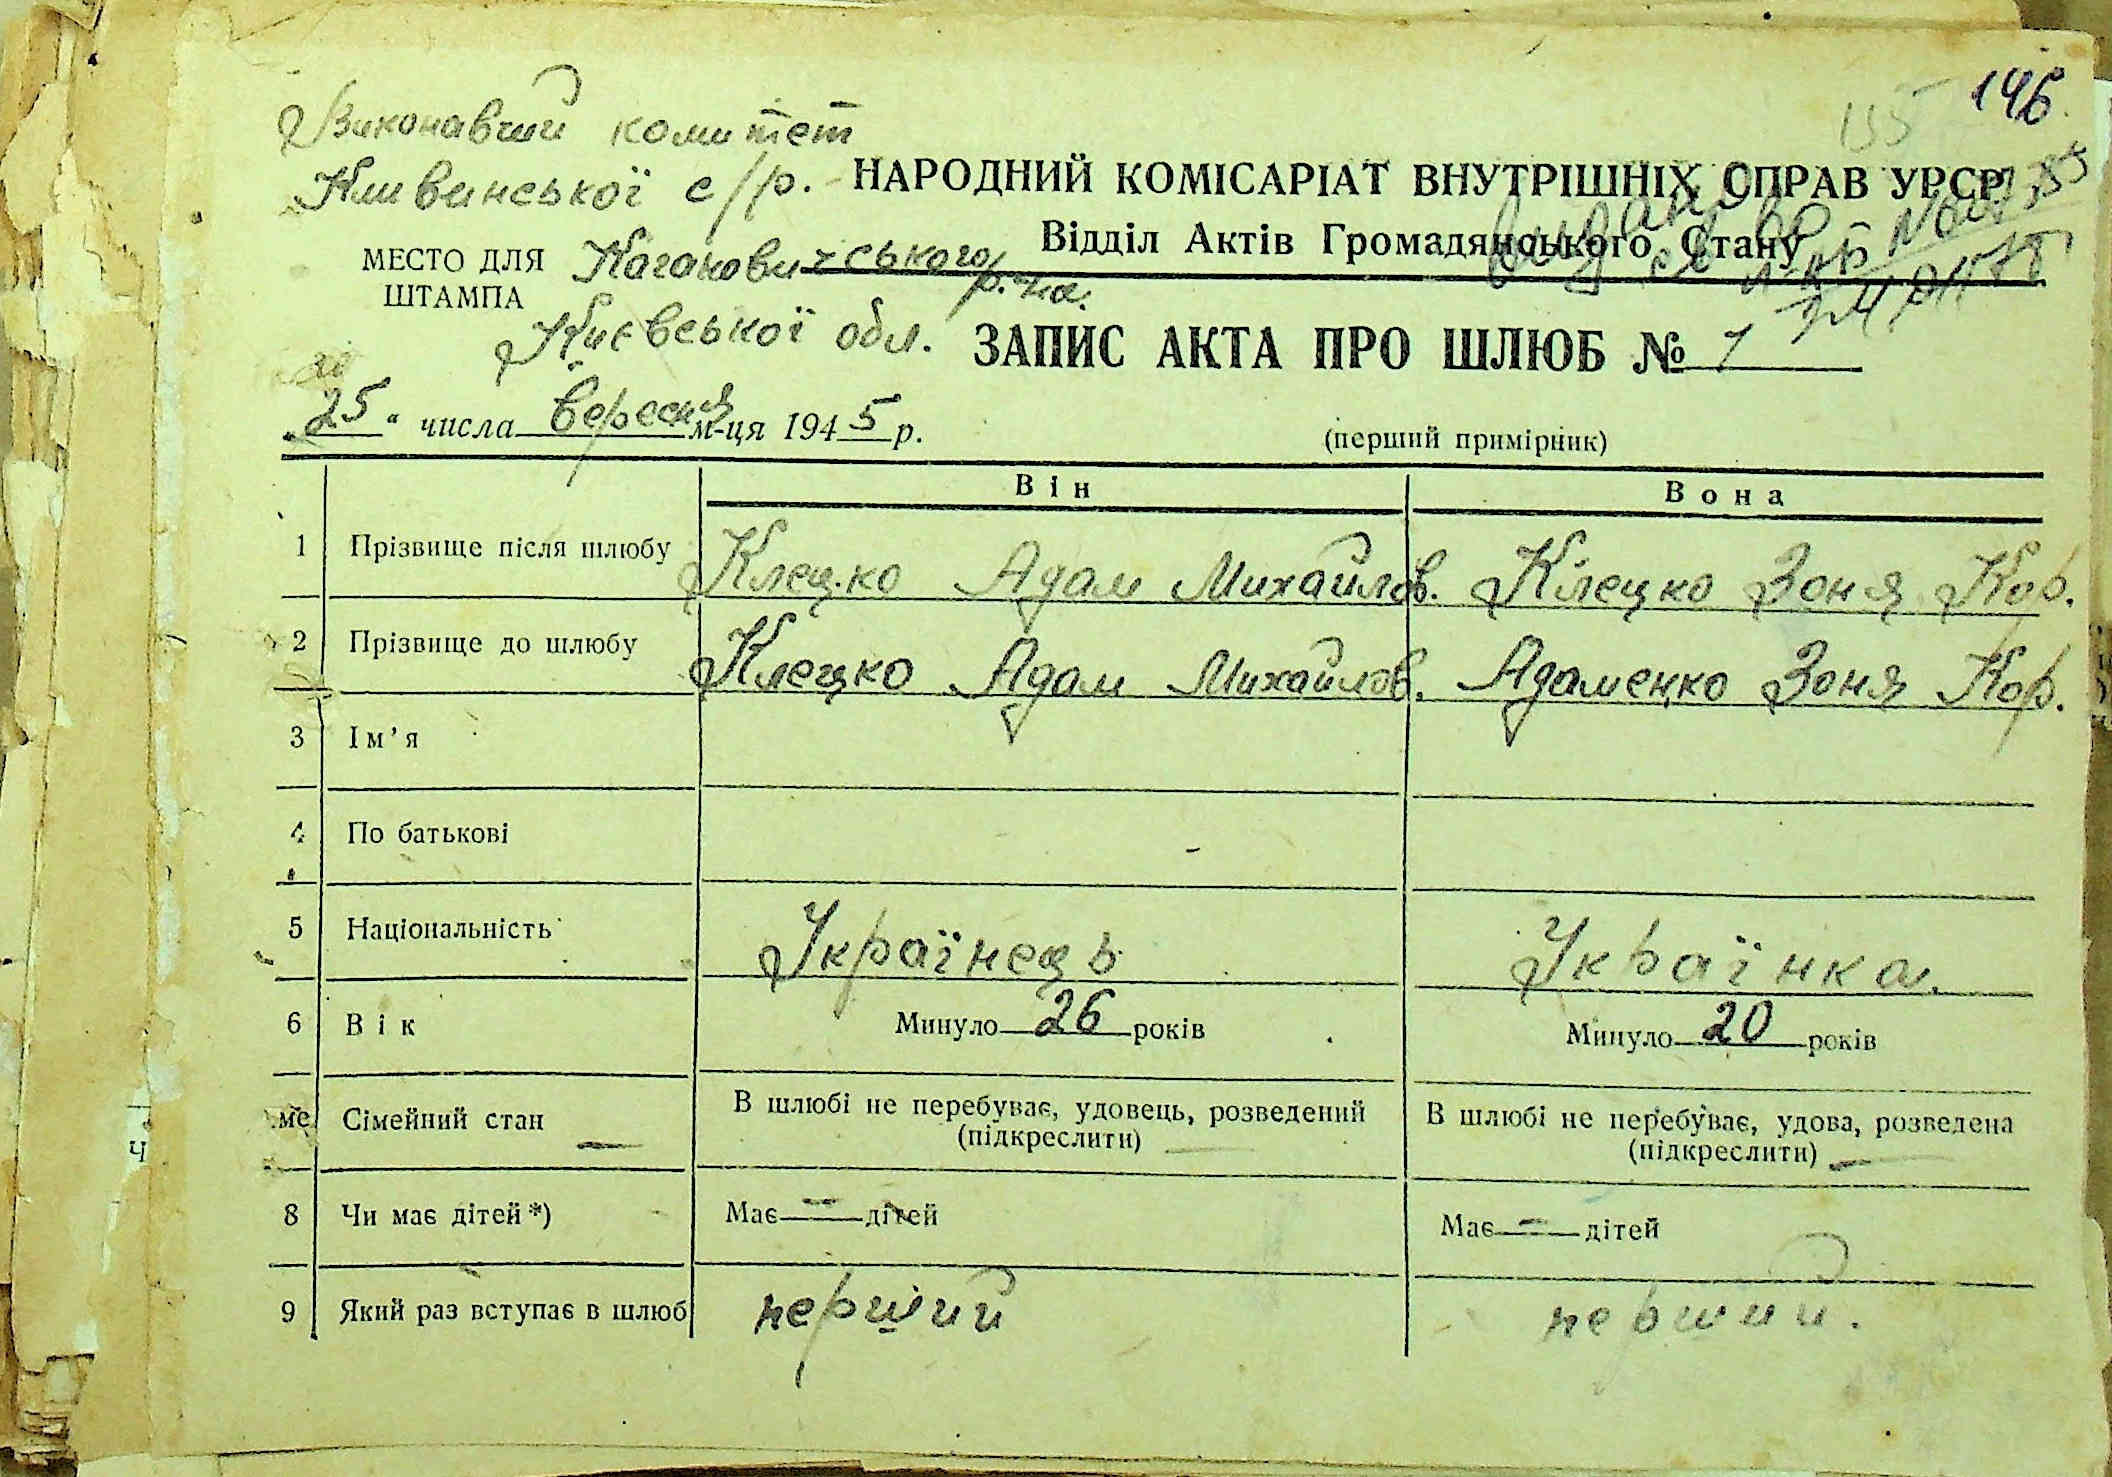 146
155
Виконавчий комитет
Кливинської с/р.
НАРОДНИЙ КОМІСАРІАТ ВНУТРІШНІХ СПРАВ УРСР
Відділ Актів Громадянського Стану
МЕСТО ДЛЯ ШТАМПА
Кагановичського р-на.
Київської обл.
ЗАПИС АКТА ПРО ШЛЮБ № 1
"25" числа вересня м-ця 1945 р.
(перший примірник)
Він Вона
1 Прізвище після шлюбу Клецко Адам Михайлов. Клецко Зоня Кор.
2 Прізвище до шлюбу Клецко Адам Михайлов. Адаменко Зоня Кор.
3 Ім’я
4 По батькові
5 Національність Українець Українка.
6 Вік Минуло 26 років Минуло 20 років
Сімейний стан В шлюбі не перебуває, удовець, розведений (підкреслити) В шлюбі не перебуває, удова, розведена (підкреслити)
8 Чи має дітей *) Має — дітей Має — дітей
9 Який раз вступає в шлюб перший перший.